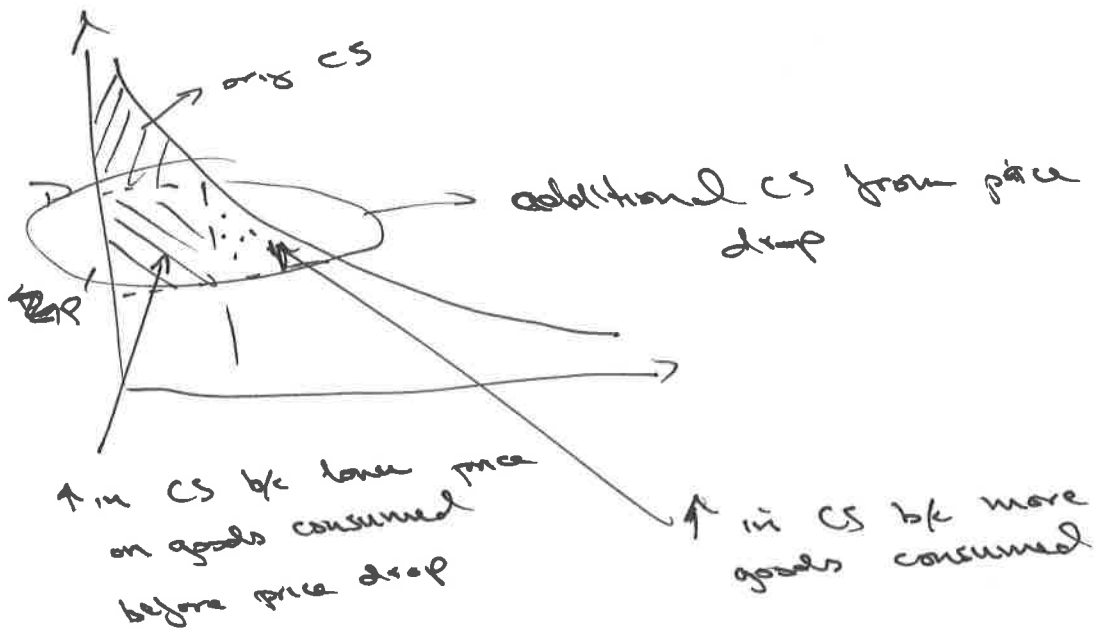 orig CS
P
additional CS from price
drop
P
↑ in CS b/c lower price
on goods consumed
before price drop
↑ in CS b/c more
goods consumed